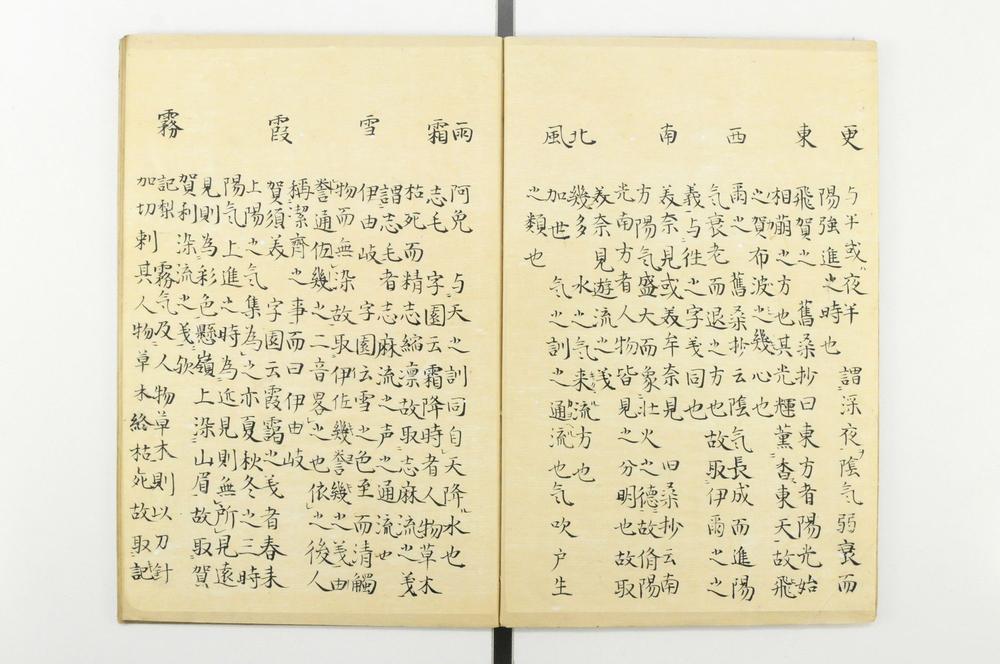 更 与半或夜半也 謂深夜陰気弱衰而
陽強進之時也
東 飛賀之 舊桑抄曰東方者陽光始
相崩之方也其光輝薫香東天故飛
之賀布波之幾心也
西 爾之 舊桑抄云陰気長成而進陽
気衰老而退之方也故取伊爾之之
義与往之字義同
南 美奈見或美牟奈見 旧桑抄云南
方陽気盛大而象壮火之德故脩陽
光南方者人物皆見之分明也故取
美奈見遊流之義
北 幾多 水之気来流方也
風 加世 気之訓之通流也気吹戸生
之類也
雨 阿免 与天之訓同自天降水也
霜 志毛 字園云霜降時者人物草木
枯死而精志縮凛故取志麻流之義
謂志毛者志麻流之声之通流也
雪 伊由岐 字園云雪之色至而清觸
物而無染故取伊佐幾誉幾之義由
誉通佐幾之二音畧之也依之後人
稱潔齊之事而曰伊由岐
霞 賀須美 字園云霞靄之義者春来
上陽之気集為之亦夏秋冬之三時
陽気上進之時為近見則無所見遠
見則為彩色懸嶺上染山眉故取賀
賀利染流之義歟
霧 記梨 霧気及人物草木則以刀針
加切刺其人物草木終枯死故取記